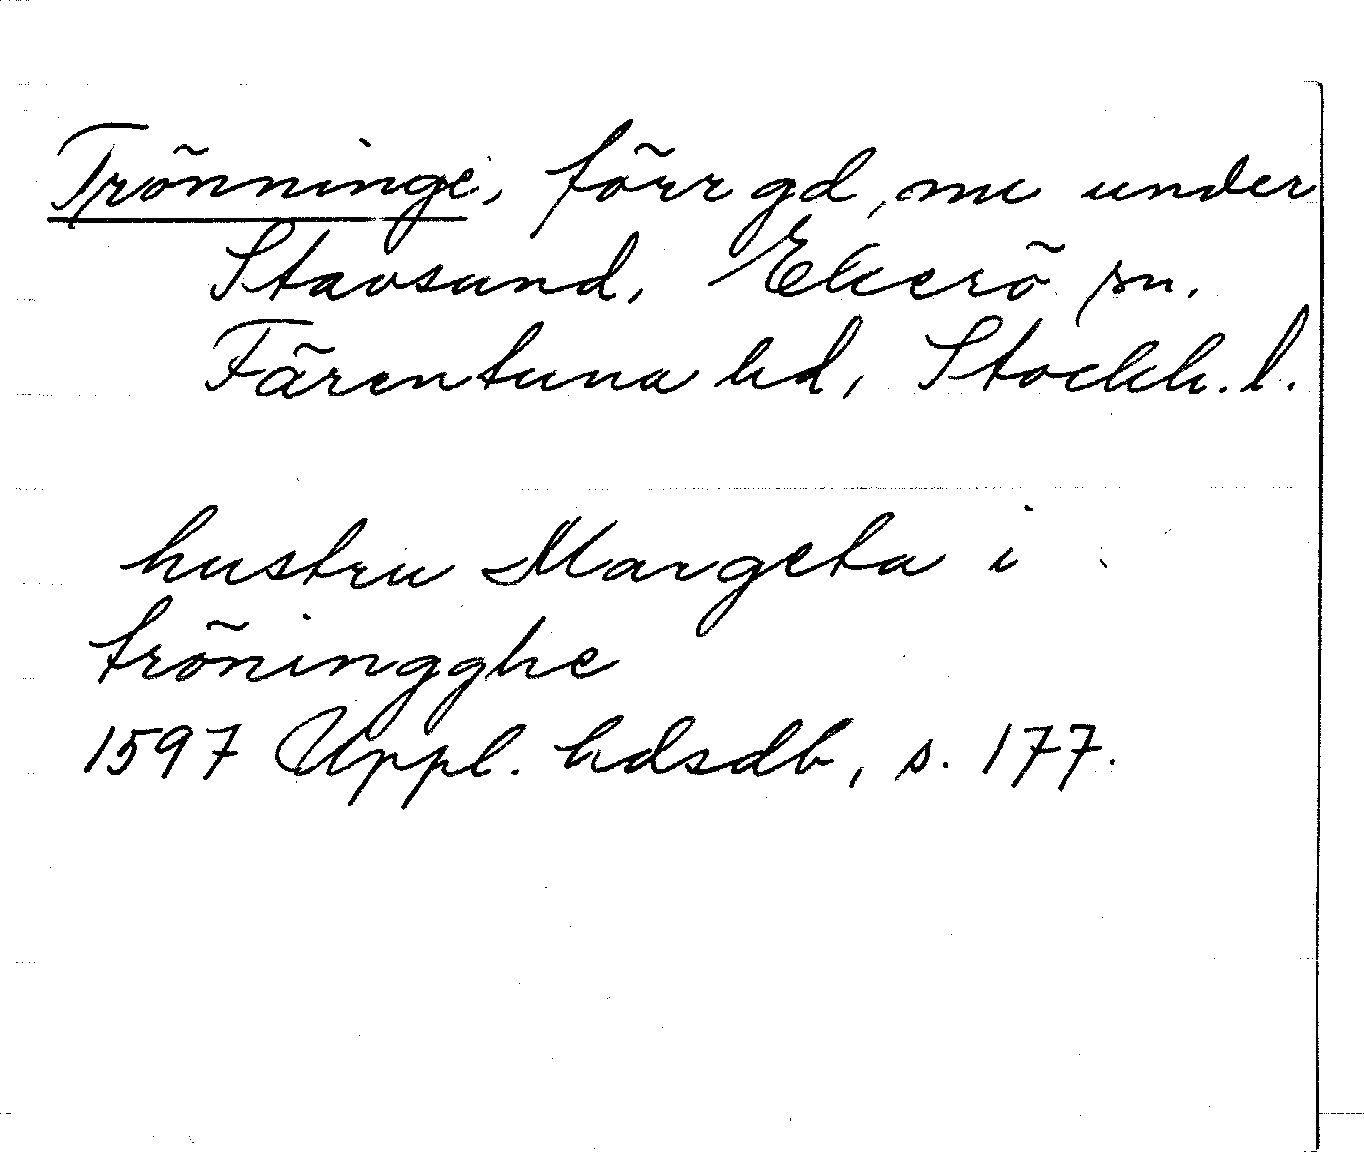 Trönninge, förr gd, nu under
Stavsund, Ekerö sn,
Färentuna hd, Stockh. l.
hustru Margeta i
tröningghe
1597 Uppl. hdsdb, s. 177.